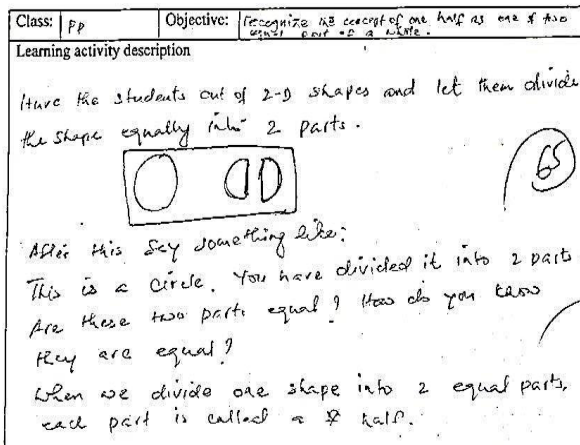 Class: PP Objective: Recognize the concept of one half as one of two
equal part of a whole.
Learning activity description
Have the students cut of 2-D shapes and let them divide
the shape equally into 2 parts.
65
After this say something like:
This is a circle. You have divided it into 2 parts
Are these two parts equal? How do you know
they are equal?
When we divide one shape into 2 equal parts,
each part is called a half.